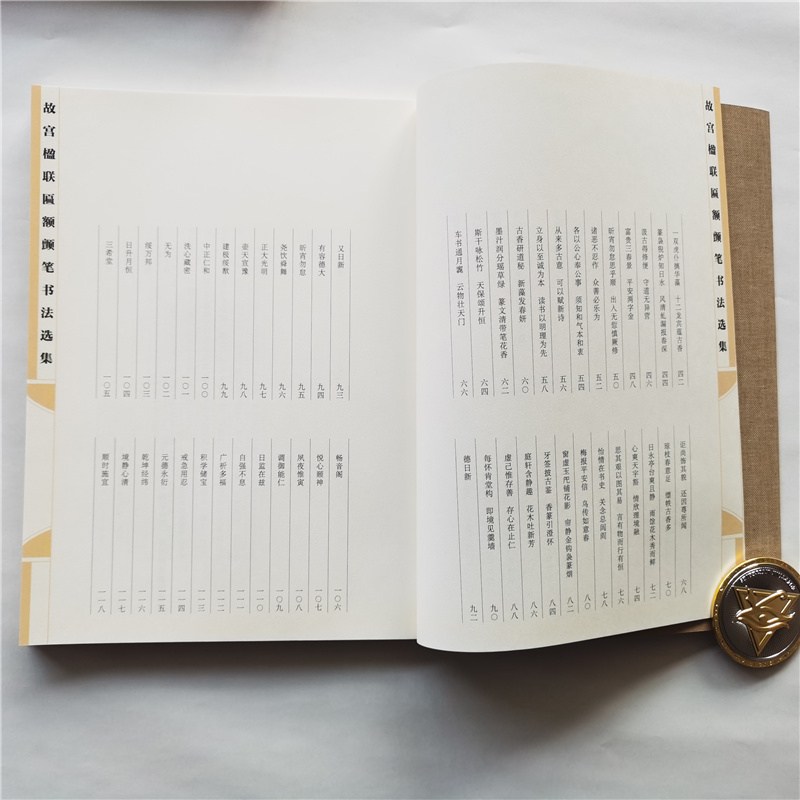 故宫楹联匾额颜笔书法选集
一双虎仆摛华藻 十二龙宾蕴古香 四二
知日永 风清虬漏报春深 四四
汲古得修绠 守道无异营 四六
富贵三春景 平安两字金 四八
昕宵勿怠思乎顺 出入无愆慎厥修 五〇
诸恶不忍作 众善必乐为 五二
各以公心奉公事 须知和气本和衷 五四
从来多古意 可以赋新诗 五六
立身以至诚为本 读书以明理为先 五八
古香研道秘 新藻发春妍 六〇
墨汁润分瑶草绿 篆文清带笔花香 六二
斯干咏松竹 天保颂升恒 六四
车书通月窟 云物壮天门 六六
还因尊所闻 六八
琼枝春意足 缥帙古香多 七〇
日永亭台爽且静 雨馀花木秀而鲜 七二
心爽天宇豁 情放理境融 七四
思其艰以图其易 言有物而行有恒 七六
怡情在书史 关念总闾阎 七八
梅报平安信 鸟传如意春 八〇
窗虚玉儿铺花影 帘静金钩袅篆烟 八二
牙签披古鉴 香篆引澄怀 八四
庭轩含静趣 花木吐新芳 八六
虚己惟存善 存心在止仁 八八
每怀肯堂构 即境见羹墙 九〇
德日新 九二
又日新 九三
有容德大 九四
昕宵勿怠 九五
尧饮舜舞 九六
正大光明 九七
壶天宣豫 九八
建极绥猷 九九
中正仁和 一〇〇
洗心藏密 一〇一
无为 一〇二
绥万邦 一〇三
日升月恒 一〇四
三希堂 一〇五
畅音阁 一〇六
悦心颐神 一〇七
夙夜惟寅 一〇八
调御能仁 一〇九
日监在兹 一一〇
自强不息 一一一
广祈多福 一一二
积学储宝 一一三
戒急用忍 一一四
元德永贻 一一五
乾坤经纬 一一六
境静心清 一一七
顺时施宜 一一八
故宫楹联匾额颜笔书法选集